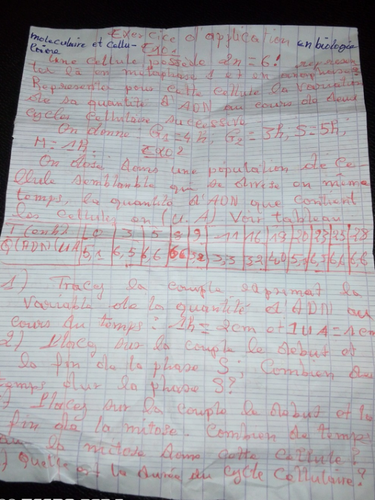 Exercice d'application en biologie
moleculaire et Cellu-
laire
EXO1
Une cellule possède 2n = 6! represen
ter la en metaphase 1 et en anaphase
Representer pour cette cellule la variation
de sa quantité d'ADN au cours de deux
cycles cellulaire successive
On donne: G1 = 4h, G2 = 3h, S = 5h;
M = 1h.
EXO2
On dose, dans une population de ce
llule semblable qui se divise en même
temps, la quantité d'ADN que contient
les cellules en (U.A) Voir tableau
T(en h) 0 3 5 8 9 11 16
Q(ADN)UA 6,6 3,3
1) Tracez la courbe exprimant la
variable de la quantité d'ADN au
cours du temps: 1h = 2cm et 1UA = 1cm
2) Placez sur la courbe le debut et
la fin de la phase S; Combien de
temps dur la phase S?
) Placez sur la courbe le debut et la
fin de la mitose. Combien de temps
la mitose dans cette cellule?
) quelle est la durée du cycle cellulaire?